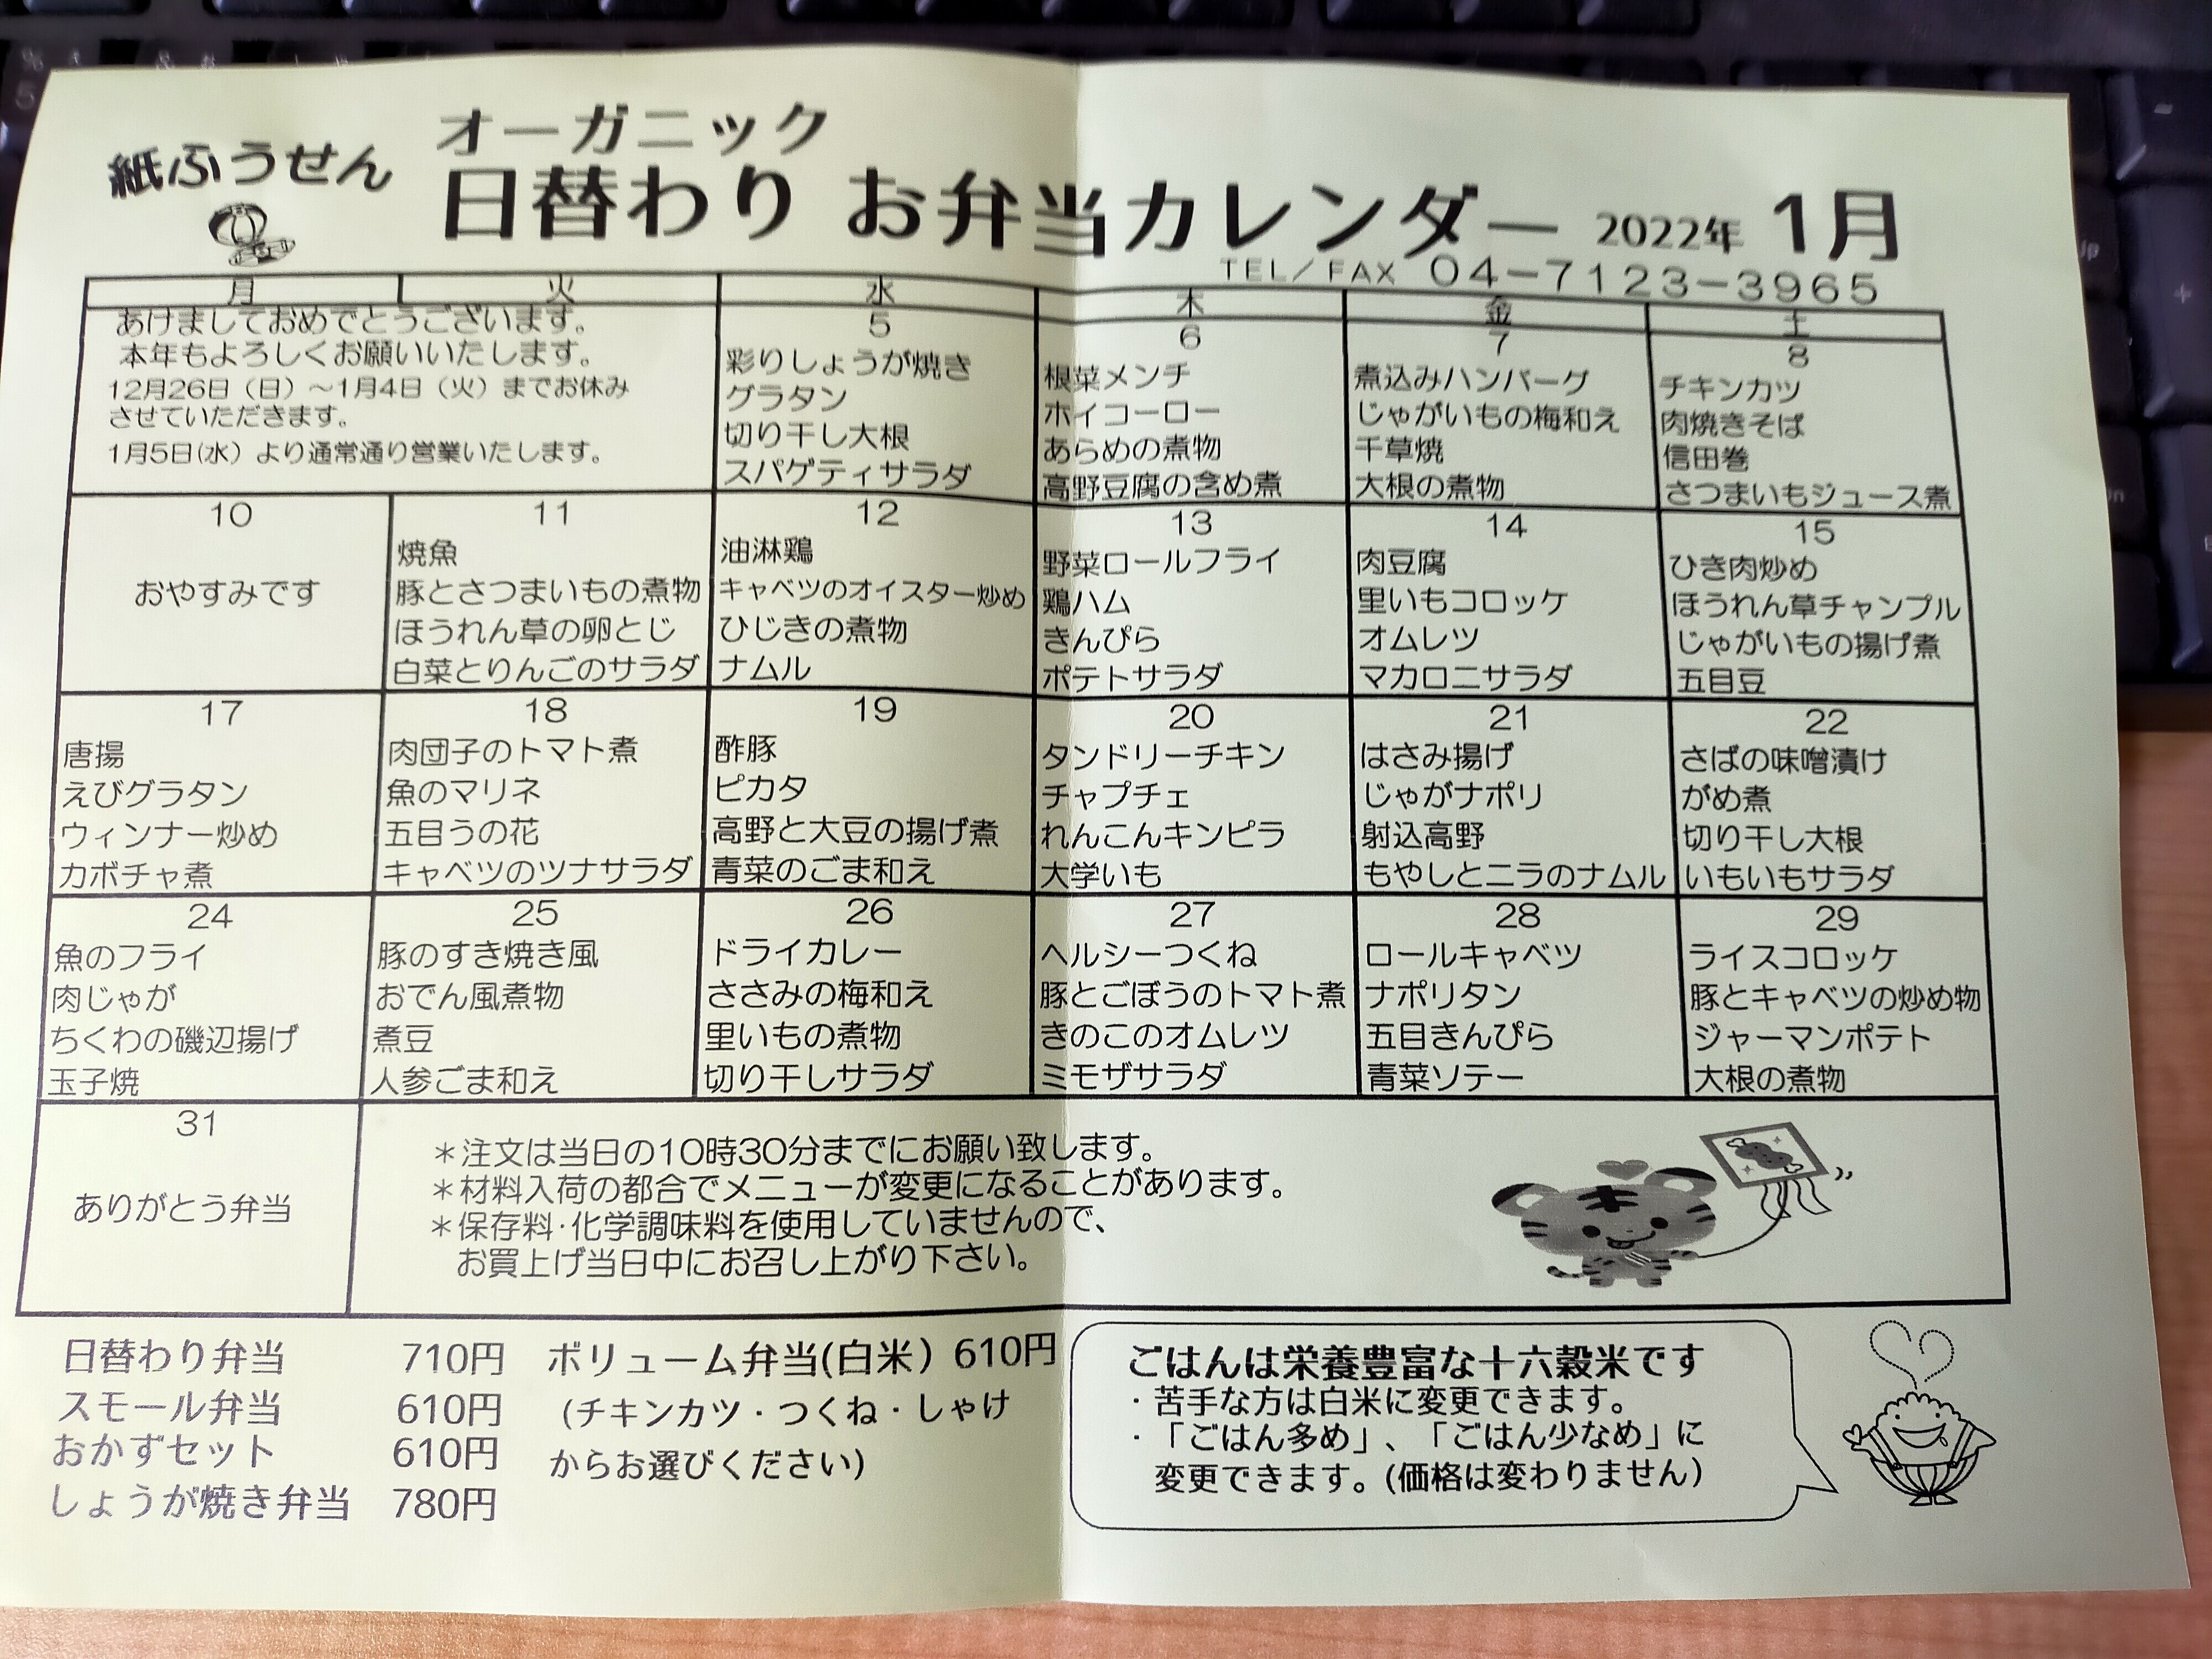 紙ふうせん
オーガニック
日替わり お弁当カレンダー 2022年 1月
TEL/FAX 04-7123-3965
月 火 水 木 金 土
あけましておめでとうございます。
本年もよろしくお願いいたします。
12月26日（日）～1月4日（火）までお休み
させていただきます。
1月5日(水）より通常通り営業いたします。
5
彩りしょうが焼き
グラタン
切り干し大根
スパゲティサラダ
6
根菜メンチ
ホイコーロー
あらめの煮物
高野豆腐の含め煮
7
煮込みハンバーグ
じゃがいもの梅和え
千草焼
大根の煮物
8
チキンカツ
肉焼きそば
信田巻
さつまいもジュース煮
10
おやすみです
11
焼魚
豚とさつまいもの煮物
ほうれん草の卵とじ
白菜とりんごのサラダ
12
油淋鶏
キャベツのオイスター炒め
ひじきの煮物
ナムル
13
野菜ロールフライ
鶏ハム
きんぴら
ポテトサラダ
14
肉豆腐
里いもコロッケ
オムレツ
マカロニサラダ
15
ひき肉炒め
ほうれん草チャンプル
じゃがいもの揚げ煮
五目豆
17
唐揚
えびグラタン
ウィンナー炒め
カボチャ煮
18
肉団子のトマト煮
魚のマリネ
五目うの花
キャベツのツナサラダ
19
酢豚
ピカタ
高野と大豆の揚げ煮
青菜のごま和え
20
タンドリーチキン
チャプチェ
れんこんキンピラ
大学いも
21
はさみ揚げ
じゃがナポリ
射込高野
もやしとニラのナムル
22
さばの味噌漬け
がめ煮
切り干し大根
いもいもサラダ
24
魚のフライ
肉じゃが
ちくわの磯辺揚げ
玉子焼
25
豚のすき焼き風
おでん風煮物
煮豆
人参ごま和え
26
ドライカレー
ささみの梅和え
里いもの煮物
切り干しサラダ
27
ヘルシーつくね
豚とごぼうのトマト煮
きのこのオムレツ
ミモザサラダ
28
ロールキャベツ
ナポリタン
五目きんぴら
青菜ソテー
29
ライスコロッケ
豚とキャベツの炒め物
ジャーマンポテト
大根の煮物
31
ありがとう弁当
＊注文は当日の10時30分までにお願い致します。
＊材料入荷の都合でメニューが変更になることがあります。
＊保存料・化学調味料を使用していませんので、
お買上げ当日中にお召し上がり下さい。
日替わり弁当 710円
スモール弁当 610円
おかずセット 610円
しょうが焼き弁当 780円
ボリューム弁当(白米）610円
(チキンカツ・つくね・しゃけ
からお選びください)
ごはんは栄養豊富な十六穀米です
・苦手な方は白米に変更できます。
・「ごはん多め」、「ごはん少なめ」に
変更できます。(価格は変わりません）